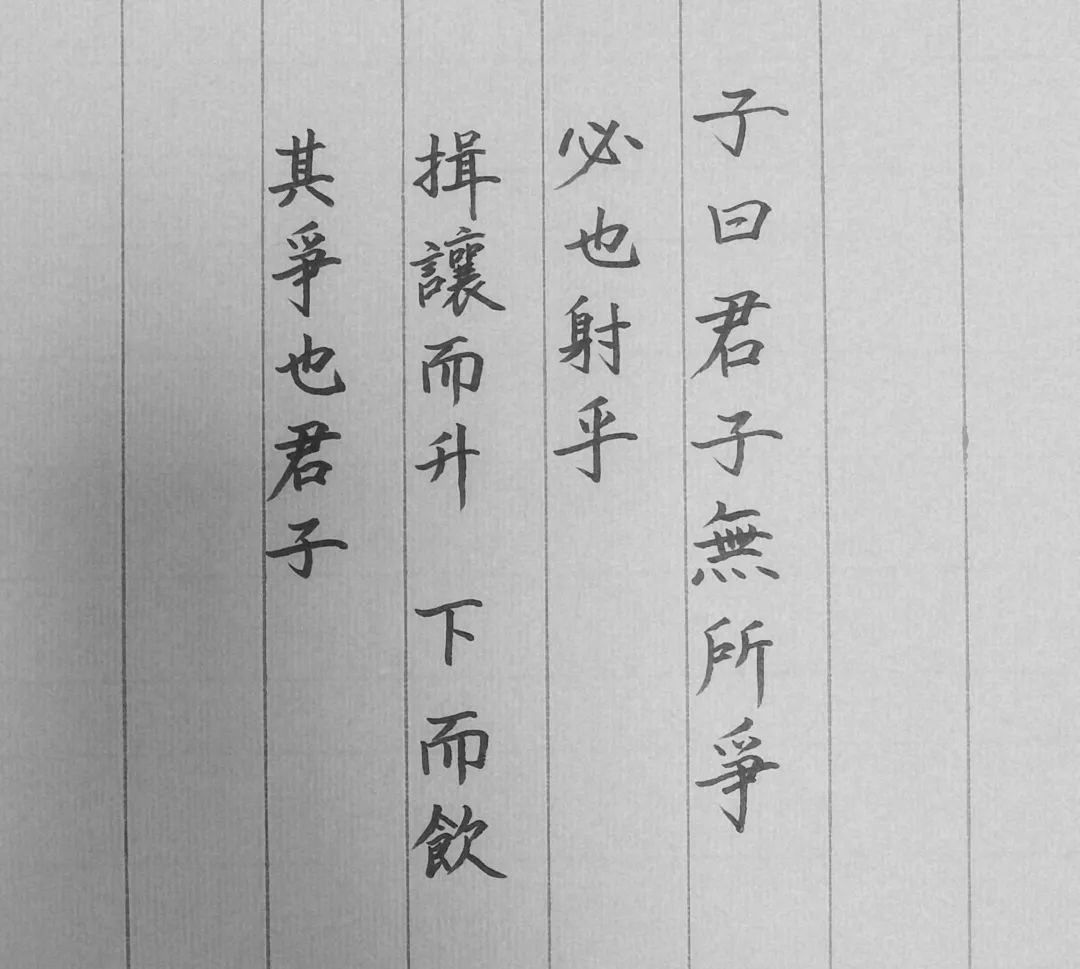 子曰君子無所爭
必也射乎
揖讓而升 下而飲
其爭也君子